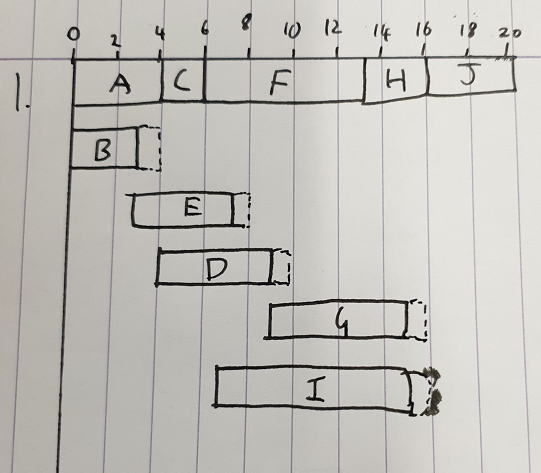 0 2 4 6 8 10 12 14 16 18 20
1. A C F H J
B
E
D
G
I